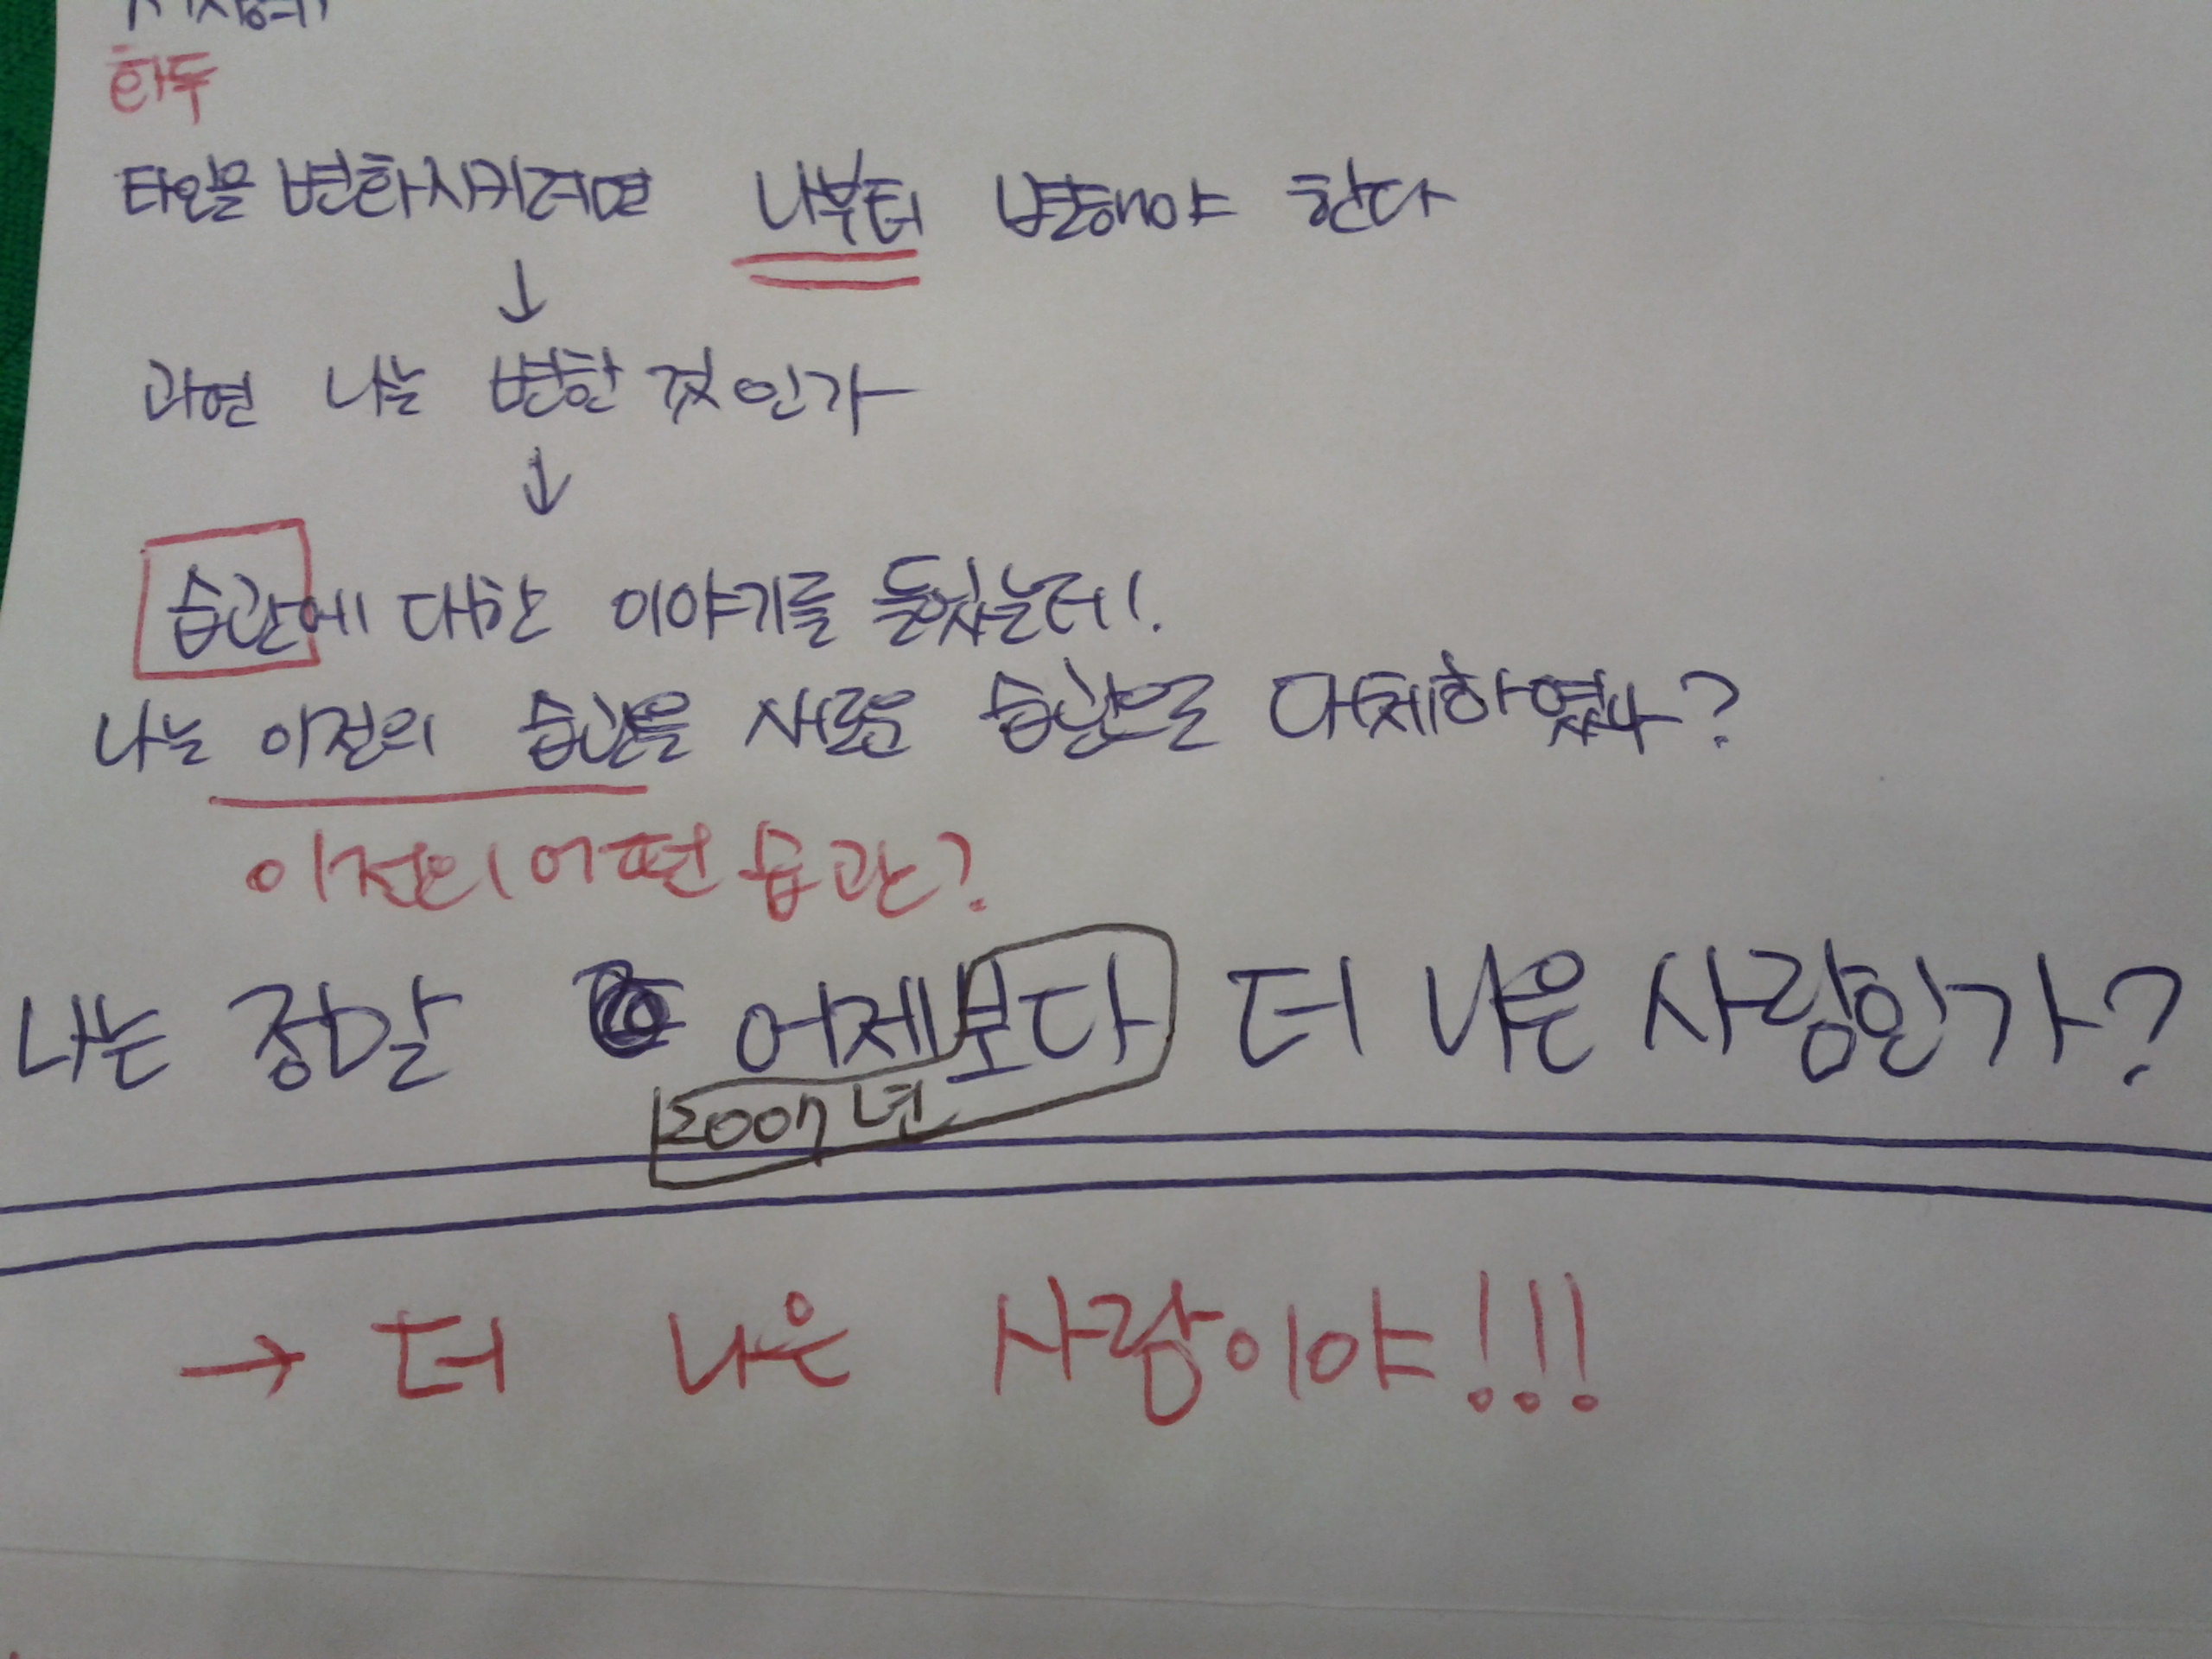 화두
타인을 변화시키려면 나부터 변해야 한다
↓
과연 나는 변한 것인가
↓
습관에 대한 이야기를 들었는데!
나는 이전의 습관을 새로운 습관으로 대체하였나?
이전의 어떤 습관?
나는 정말 어제보다 더 나은 사람인가?
2007년
→ 더 나은 사람이야!!!